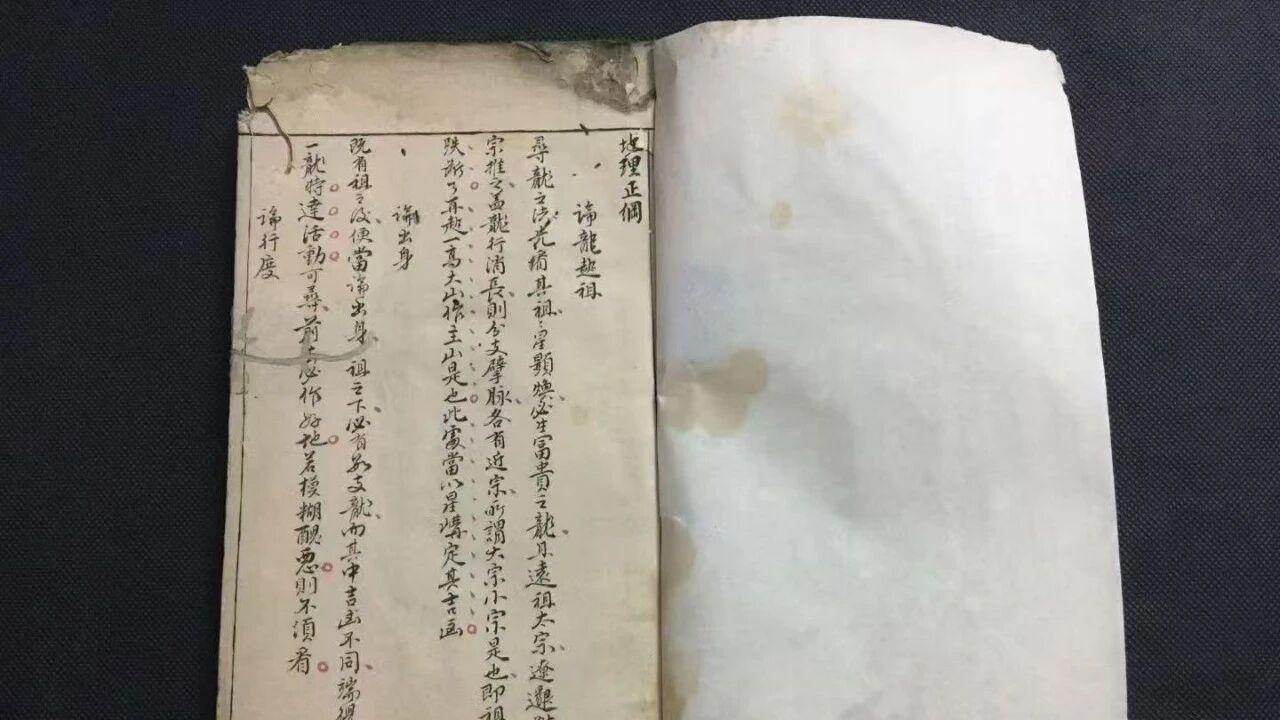 地理正綱
論龍起祖
尋龍之法先猜其祖〻星顯煥必生富貴之龍且遠祖太宗遼遐
宗推之蓋龍行消長則分支擘脉各有近宗所謂大宗小宗是也即祖
跌斷了再起一高大山作主山是也此處當以星講定其吉凶
論出身
既有祖之後便當論出身祖之下必有數支龍而其中吉凶不同端得
一龍特達活動可尋前去必作好地若模糊醜惡則不須看
論行度